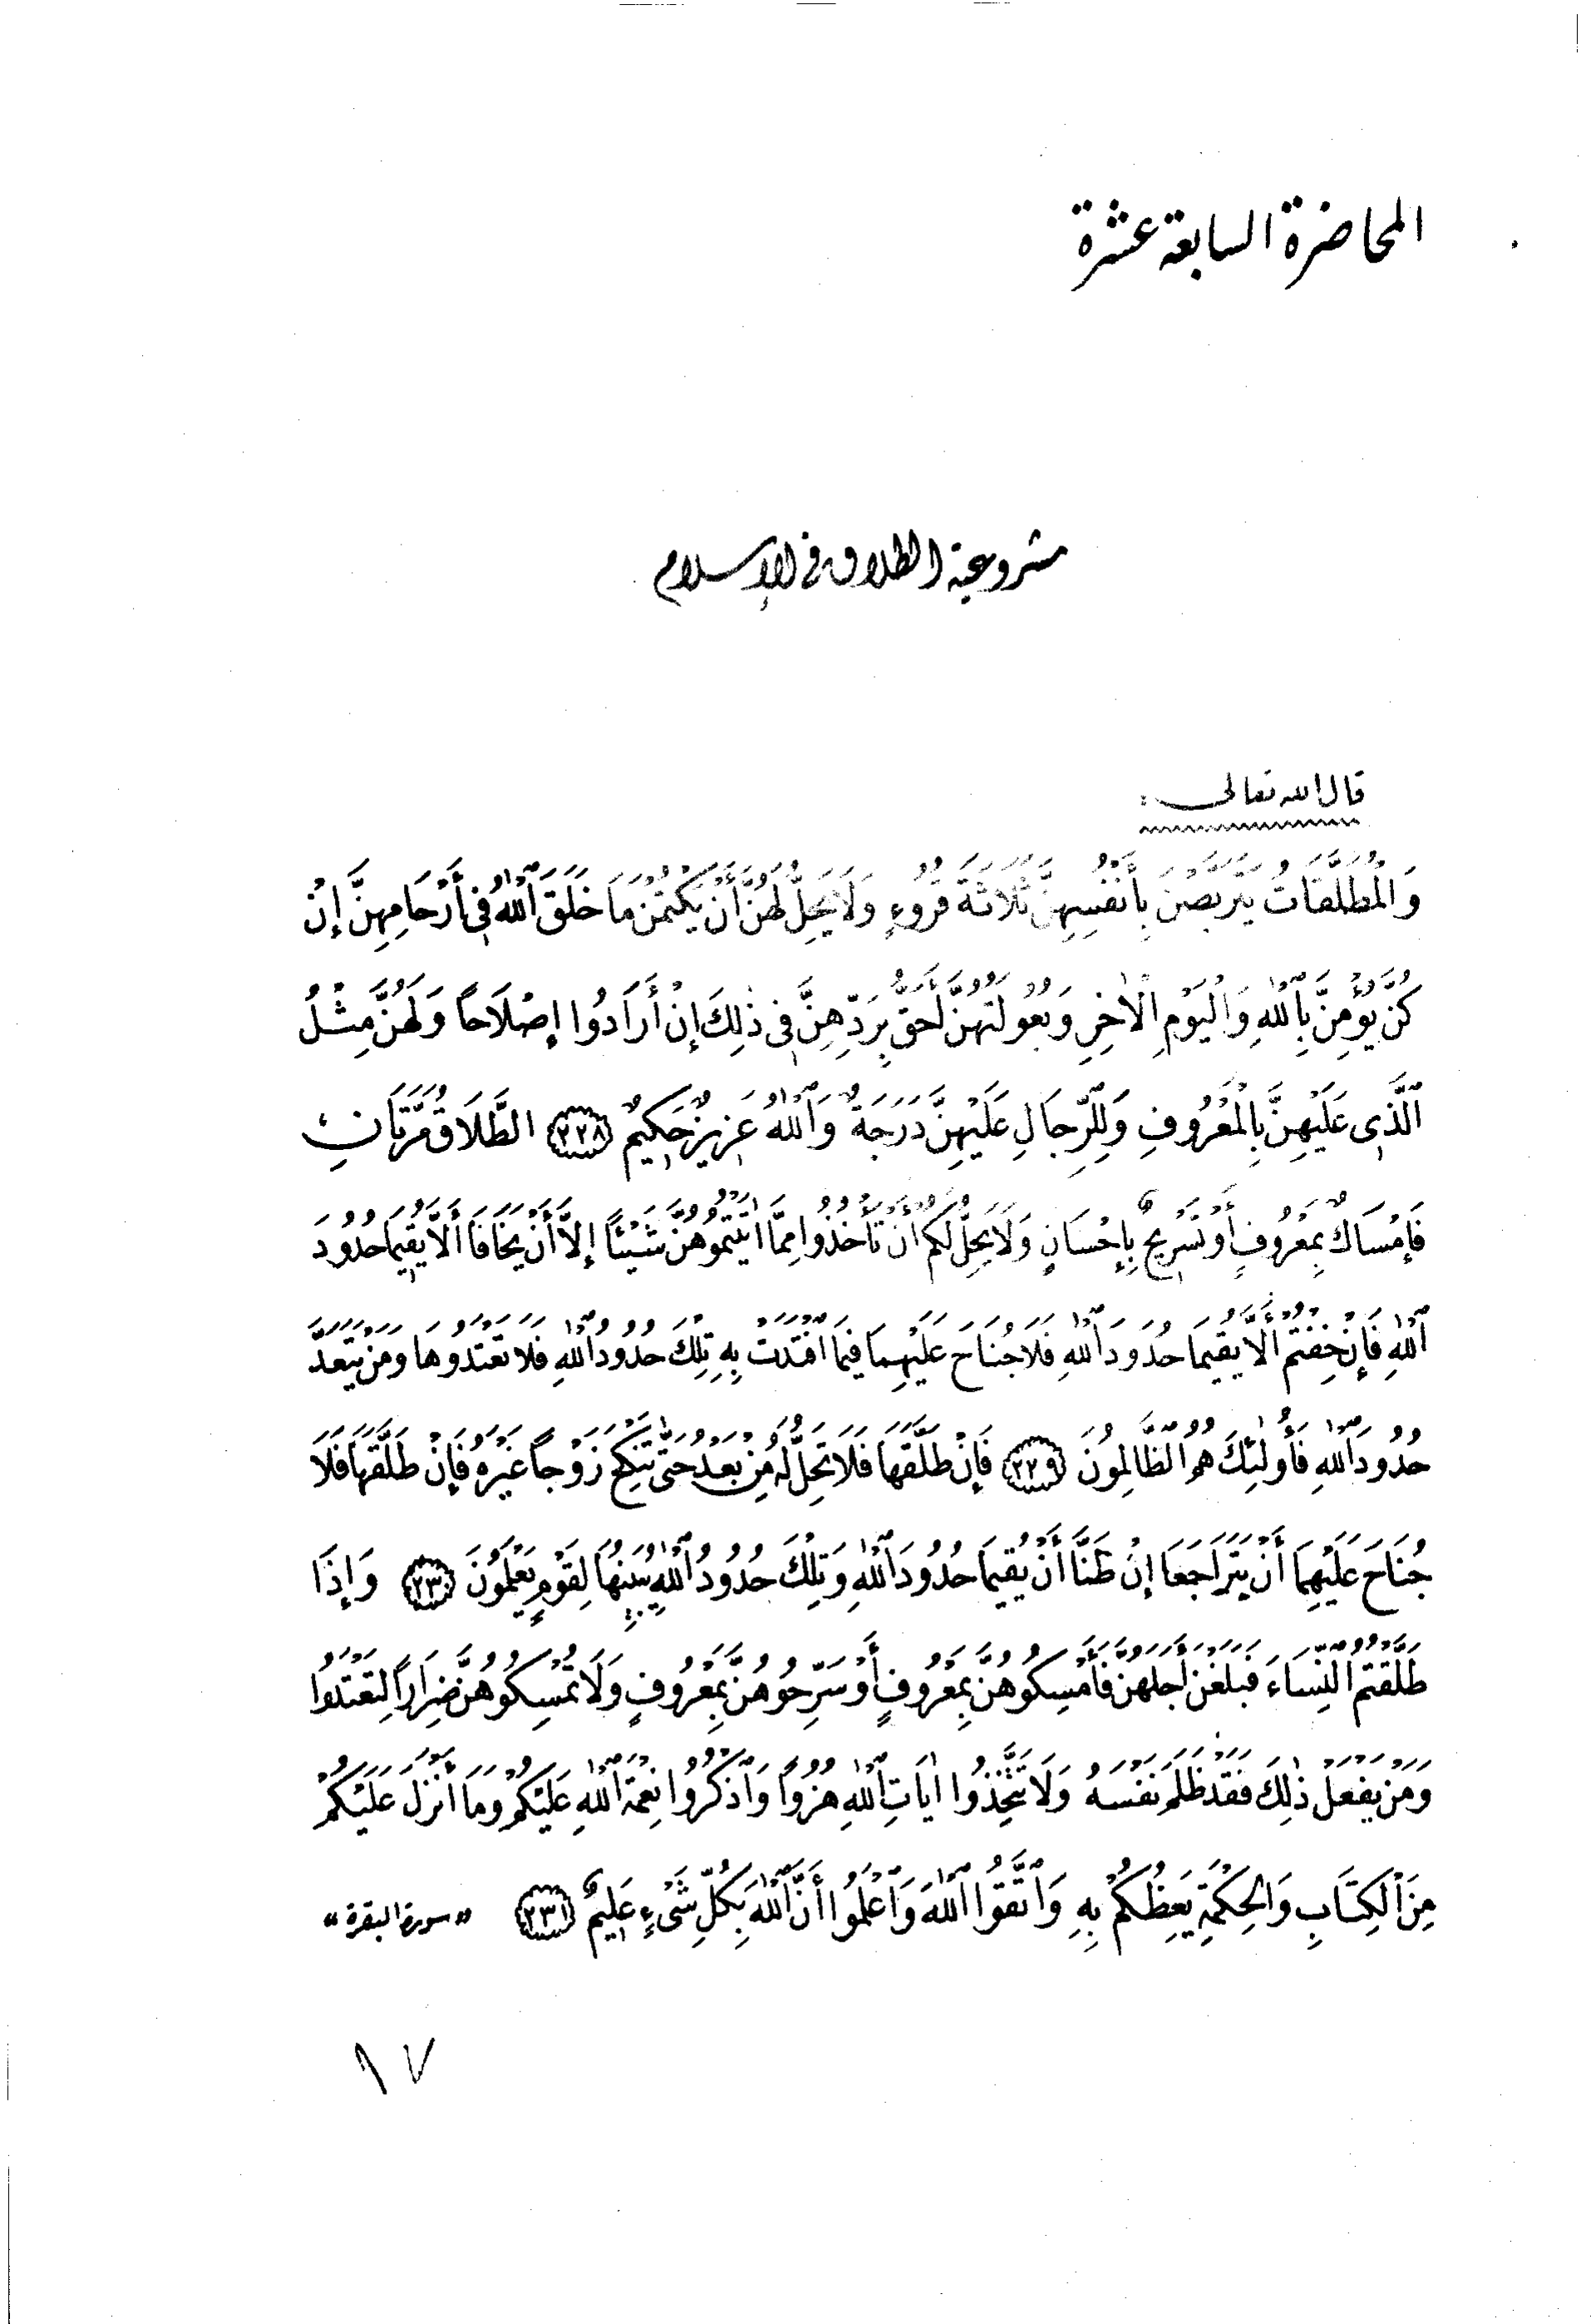 المحاضرة السابعة عشرة
مشروعية الطلاق في الإسلام
قال الله تعالى :
وَالْمُطَلَّقَاتُ يَتَرَبَّصْنَ بِأَنْفُسِهِنَّ ثَلَاثَةَ قُرُوءٍ وَلَا يَحِلُّ لَهُنَّ أَنْ يَكْتُمْنَ مَا خَلَقَ ٱللّٰهُ فِي أَرْحَامِهِنَّ إِنْ
كُنَّ يُؤْمِنَّ بِٱللّٰهِ وَالْيَوْمِ الْاٰخِرِ وَبُعُولَتُهُنَّ أَحَقُّ بِرَدِّهِنَّ فِي ذٰلِكَ إِنْ أَرَادُوا إِصْلَاحاً وَلَهُنَّ مِثْلُ
ٱلَّذِي عَلَيْهِنَّ بِالْمَعْرُوفِ وَلِلرِّجَالِ عَلَيْهِنَّ دَرَجَةٌ وَٱللّٰهُ عَزِيزٌ حَكِيمٌ (٢٢٨) الطَّلَاقُ مَرَّتَانِ
فَإِمْسَاكٌ بِمَعْرُوفٍ أَوْ تَسْرِيحٌ بِإِحْسَانٍ وَلَا يَحِلُّ لَكُمْ أَنْ تَأْخُذُوا مِمَّا اٰتَيْتُمُوهُنَّ شَيْئاً إِلَّا أَنْ يَخَافَا أَلَّا يُقِيمَا حُدُودَ
ٱللّٰهِ فَإِنْ خِفْتُمْ أَلَّا يُقِيمَا حُدُودَ ٱللّٰهِ فَلَا جُنَاحَ عَلَيْهِمَا فِيمَا ٱفْتَدَتْ بِهِ تِلْكَ حُدُودُ ٱللّٰهِ فَلَا تَعْتَدُوهَا وَمَنْ يَتَعَدَّ
حُدُودَ ٱللّٰهِ فَأُولٰئِكَ هُمُ ٱلظَّالِمُونَ (٢٢٩) فَإِنْ طَلَّقَهَا فَلَا تَحِلُّ لَهُ مِنْ بَعْدُ حَتّٰى تَنْكِحَ زَوْجاً غَيْرَهُ فَإِنْ طَلَّقَهَا فَلَا
جُنَاحَ عَلَيْهِمَا أَنْ يَتَرَاجَعَا إِنْ ظَنَّا أَنْ يُقِيمَا حُدُودَ ٱللّٰهِ وَتِلْكَ حُدُودُ ٱللّٰهِ يُبَيِّنُهَا لِقَوْمٍ يَعْلَمُونَ (٢٣٠) وَإِذَا
طَلَّقْتُمُ ٱلنِّسَاءَ فَبَلَغْنَ أَجَلَهُنَّ فَأَمْسِكُوهُنَّ بِمَعْرُوفٍ أَوْ سَرِّحُوهُنَّ بِمَعْرُوفٍ وَلَا تُمْسِكُوهُنَّ ضِرَاراً لِتَعْتَدُوا
وَمَنْ يَفْعَلْ ذٰلِكَ فَقَدْ ظَلَمَ نَفْسَهُ وَلَا تَتَّخِذُوا اٰيَاتِ ٱللّٰهِ هُزُواً وَٱذْكُرُوا نِعْمَةَ ٱللّٰهِ عَلَيْكُمْ وَمَا أَنْزَلَ عَلَيْكُمْ
مِنَ ٱلْكِتَابِ وَالْحِكْمَةِ يَعِظُكُمْ بِهِ وَٱتَّقُوا ٱللّٰهَ وَٱعْلَمُوا أَنَّ ٱللّٰهَ بِكُلِّ شَيْءٍ عَلِيمٌ (٢٣١) «سورة البقرة»
١٧